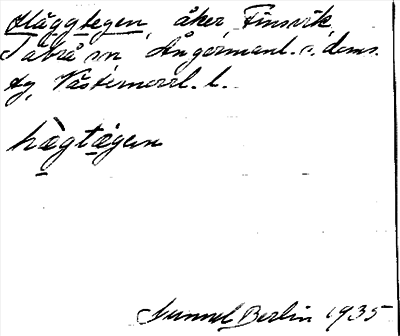 Häggtegen, åker, Finsvik,
Säbrå sn Ångermanl. s. doms.
Västernorrl. l.
hägtägen
Gunnel Berlin 1935